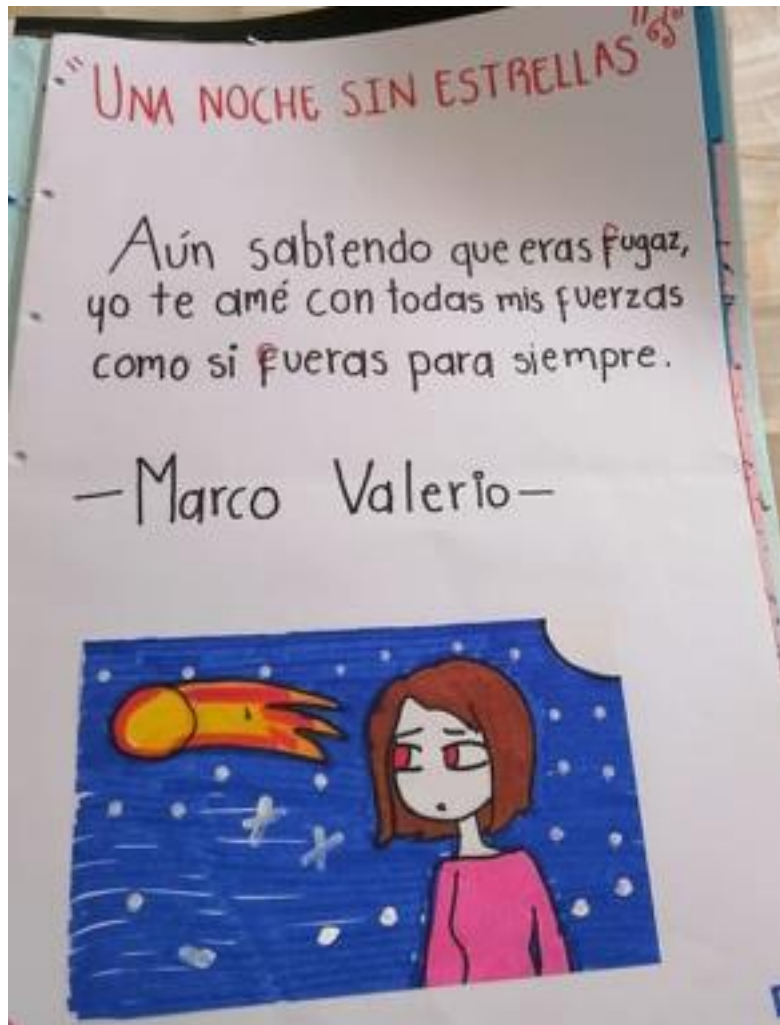 "UNA NOCHE SIN ESTRELLAS"
Aún sabiendo que eras fugaz,
yo te amé con todas mis fuerzas
como si fueras para siempre.
—Marco Valerio—